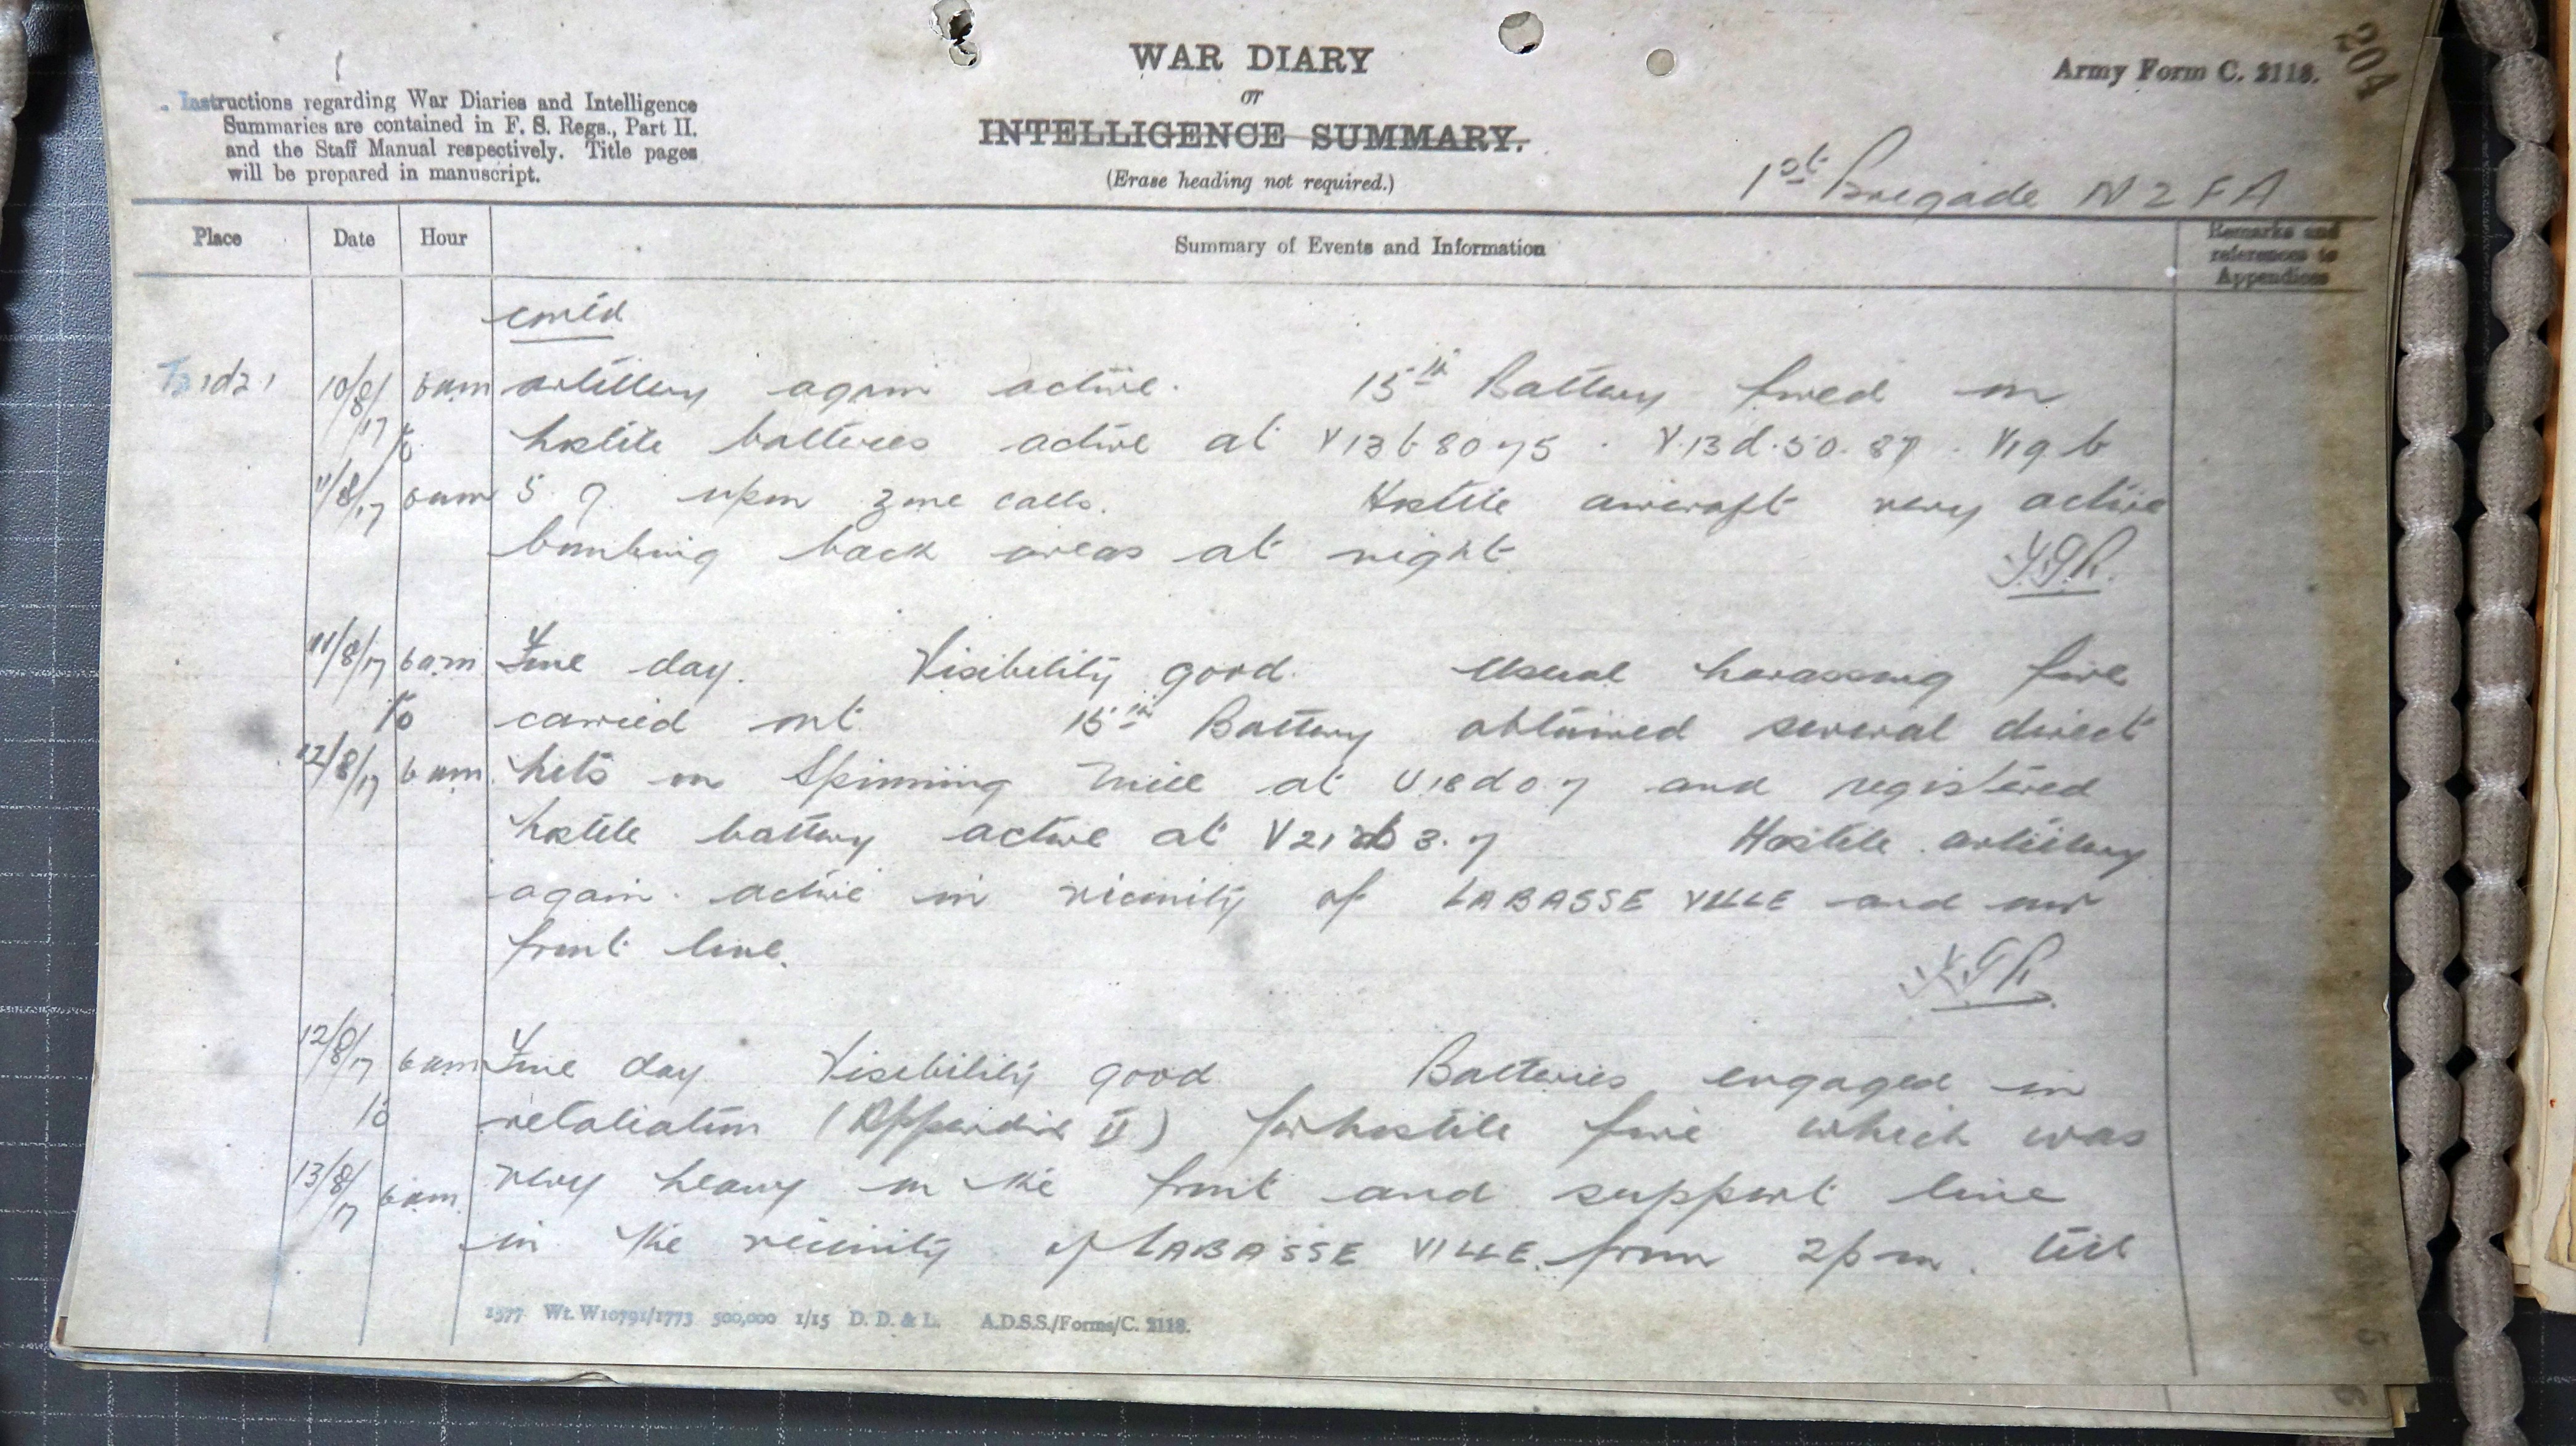 204
WAR DIARY
or
INTELLIGENCE SUMMARY.
(Erase heading not required.)
Army Form C. 2118.
Instructions regarding War Diaries and Intelligence
Summaries are contained in F. S. Regs., Part II.
and the Staff Manual respectively. Title pages
will be prepared in manuscript.
1st Brigade NZFA
Place Date Hour Summary of Events and Information Remarks and
references to
Appendices
cont'd
10/8/17 6am artillery again active. 15th Battery fired on
to hostile batteries active at V13b8075. V.13d.50.87. V19b
11/8/17 6am 5.9. upon zone calls. Hostile aircraft very active
bombing back areas at night.
11/8/17 6am Fine day. Visibility good. Usual harassing fire
to carried out 15th Battery obtained several direct
12/8/17 6am. hits on Spinning Mill at U18d07 and registered
hostile battery active at V21 b 3.7 Hostile artillery
again active in vicinity of LABASSE VILLE and our
front line.
12/8/17 6am Fine day Visibility good Batteries engaged in
to retaliation (Appendix II) for hostile fire which was
13/8/17 6am. very heavy on the front and support line
in the vicinity of LABASSE VILLE from 2pm. till
1577 Wt. W10791/1773 500,000 1/15 D. D. & L. A.D.S.S./Forms/C. 2118.